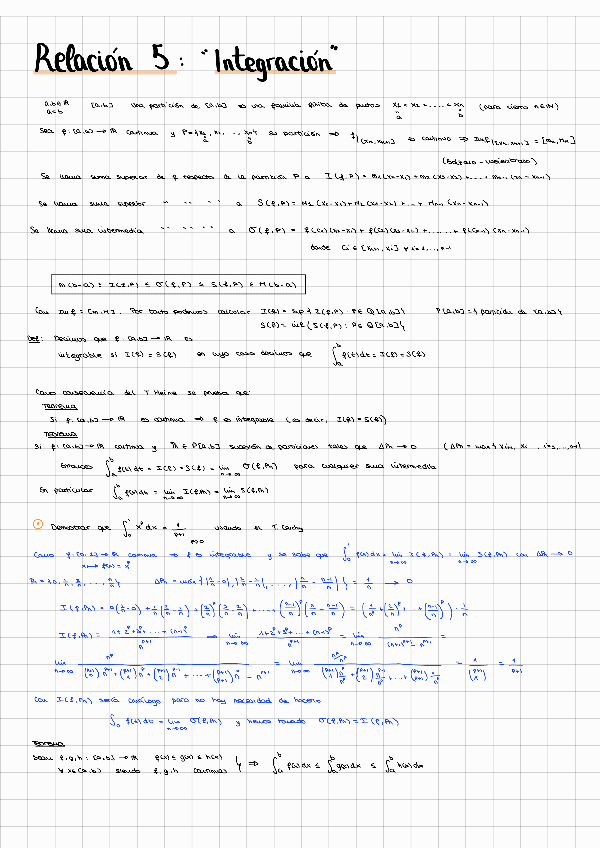 Relación 5: "Integración"
a,b∈ℝ a<b [a,b] Una partición de [a,b] es una familia finita de puntos x₁ < x₂ < ..... < xₙ (para cierto n∈ℕ)
a b
Sea f: [a,b] → ℝ continua y P={x₁, x₂, ..., xₙ} su partición ⇒ f/[xₙ, xₙ₊₁] es continua ⇒ Im f/[xₙ, xₙ₊₁] = [mₙ, Mₙ]
(Bolzano - Weierstrass)
Se llama suma superior de f respecto de la partición P a I(f,P) = m₁(x₂-x₁) + m₂(x₃-x₂) + ... + mₙ₋₁(xₙ - xₙ₋₁)
Se llama suma superior " " " " a S(f,P) = M₁(x₂-x₁) + M₂(x₃-x₂) + ... + Mₙ₋₁(xₙ-xₙ₋₁)
Se llama suma intermedia " " " " a σ(f,P) = f(c₁)(x₂-x₁) + f(c₂)(x₃-x₂) + ....... + f(cₙ₋₁)(xₙ-xₙ₋₁)
donde
m(b-a) ≤ I(f,P) ≤ σ(f,P) ≤ S(f,P) ≤ M(b-a)
Con Im f = [m,M]. Por tanto podemos calcular I(f) = sup{I(f,P) : P∈P[a,b]} P[a,b]={partición de [a,b]}
S(f) = inf{S(f,P) : P∈P[a,b]}
Def: Decimos que f: [a,b] → ℝ es
integrable si I(f) = S(f) en cuyo caso decimos que ∫ₐᵇ f(t)dt = I(f) = S(f)
Como consecuencia del T. Heine se prueba que:
Teorema
Si f: [a,b] → ℝ es continua ⇒ f es integrable (es decir, I(f) = S(f))
Teorema
Si f: [a,b] → ℝ continua y Pₙ ∈ P[a,b] sucesión de particiones tales que ΔPₙ → 0
Entonces ∫ₐᵇ f(t)dt = I(f) = S(f) = lim n→∞ σ(f,Pₙ) para cualquier suma intermedia
En particular ∫ₐᵇ f(x)dx = lim n→∞ I(f,Pₙ) = lim n→∞ S(f,Pₙ)
Demostrar que ∫₀¹ xᵖ dx = 1/(p+1) p>0 usando el T. Cauchy
Como f: [0,1] → ℝ continua ⇒ f es integrable y se sabe que ∫₀¹ f(x)dx = lim n→∞ I(f,Pₙ) = lim n→∞ S(f,Pₙ) con ΔPₙ → 0
x ↦ f(x) = xᵖ
Pₙ = {0, 1/n, 2/n, ..., n/n} ΔPₙ = max{|1/n - 0|, |2/n - 1/n|, ..., |n/n - (n-1)/n|} = 1/n → 0
I(f,Pₙ) = 0(1/n - 0) + (1/n)ᵖ(2/n - 1/n) + (2/n)ᵖ(3/n - 2/n) + .... + ((n-1)/n)ᵖ(n/n - (n-1)/n) = ((1/n)ᵖ + (2/n)ᵖ + ... + ((n-1)/n)ᵖ) · 1/n
I(f,Pₙ) = (1+2ᵖ+3ᵖ+...+(n-1)ᵖ)/nᵖ⁺¹ ⇒ lim n→∞ (1+2ᵖ+3ᵖ+...+(n-1)ᵖ)/nᵖ⁺¹ = lim n→∞ nᵖ/((n+1)ᵖ⁺¹ - nᵖ⁺¹) =
= 1/(p+1)
Con S(f,Pₙ) sería análogo pero no hay necesidad de hacerlo
∫₀¹ f(t)dt = lim n→∞ σ(f,Pₙ) y hemos tomado σ(f,Pₙ) = I(f,Pₙ)
Teorema
Sean f,g,h : [a,b] → ℝ f(x) ≤ g(x) ≤ h(x)
∀ x∈[a,b] siendo f,g,h continuas } ⇒ ∫ₐᵇ f(x)dx ≤ ∫ₐᵇ g(x)dx ≤ ∫ₐᵇ h(x)dx